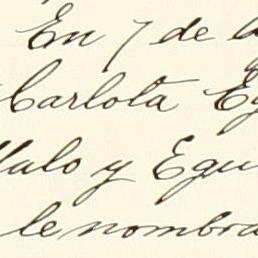 En 7 de
Carlota Eg
llalo y Egu
le nombra